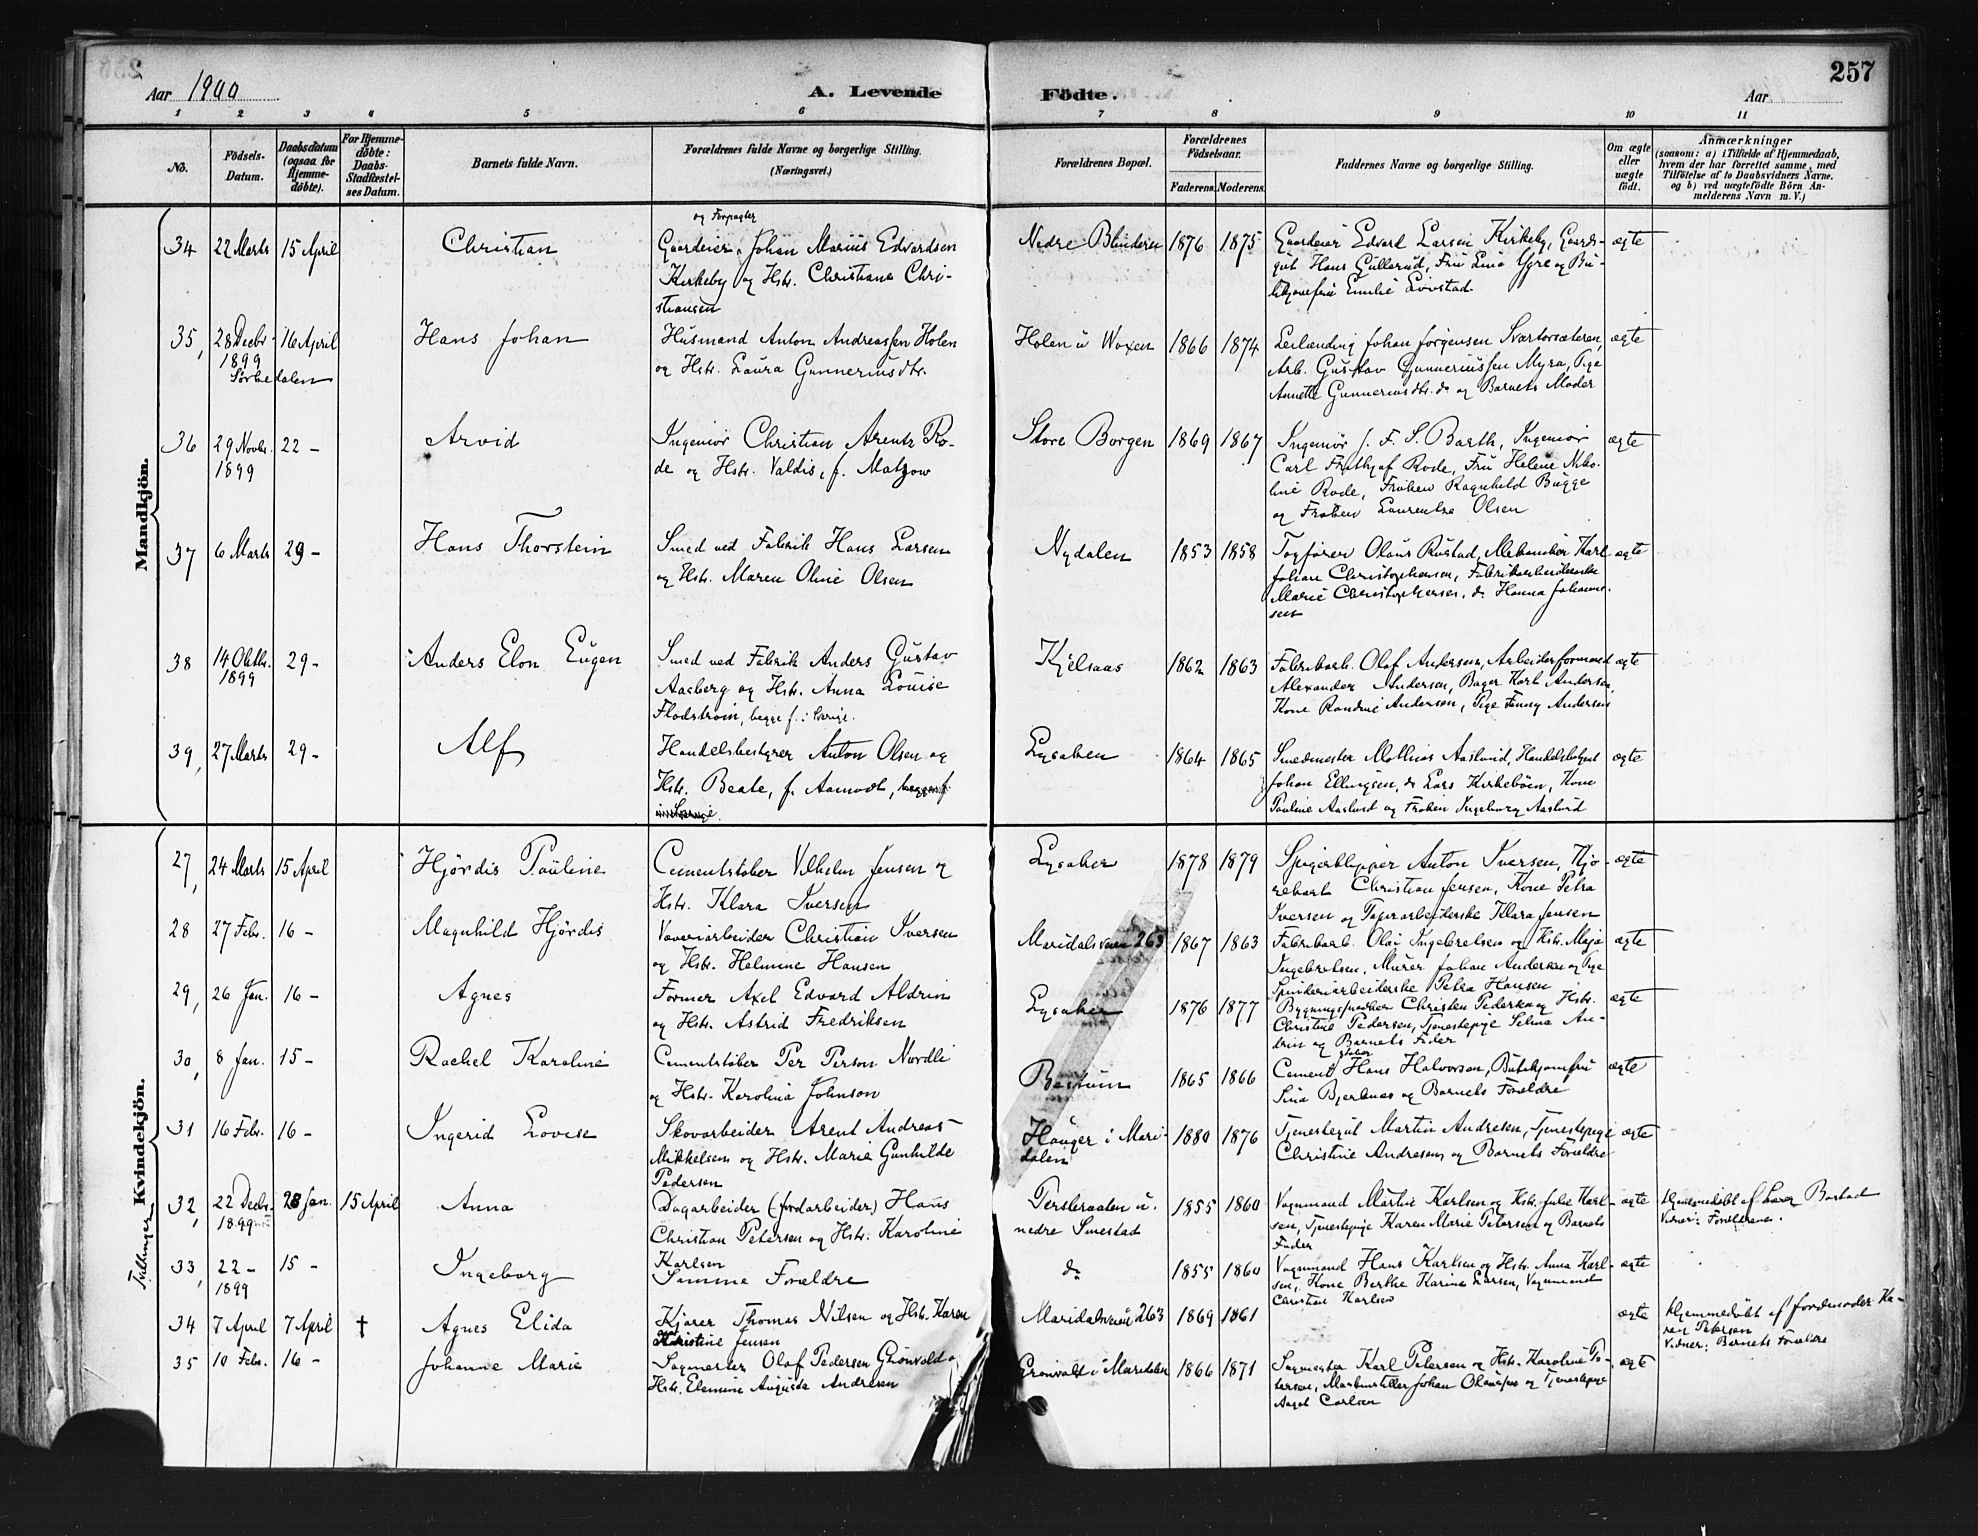 257
Aar 1900
A. Levende
Födte.
Aar
1 2 3 4 5 6 7 8 9 10 11
No.
Födsels-
Datum.
Daabsdatum
(ogsaa for
Hjemme-
döbte).
For Hjemme-
döbte:
Daabs-
Stadfæstel-
ses Datum.
Barnets fulde Navn.
Forældrenes fulde Navne og borgerlige Stilling.
(Næringsvei.)
Forældrenes Bopæl.
Forældrenes
Födselsaar.
Faderens. Moderens.
Faddernes Navne og borgerlige Stilling.
Om ægte
eller
uægte
födt.
Anmærkninger
(saasom: a) i Tilfælde af Hjemmedaab,
hvem der har forrettet samme, med
Tilföielse af to Daabsvidners Navne.
og b) ved uægtefödte Börn An-
melderens Navn m. V.)
Mandkjön.
og Forpagter
34 22 Marts 15 April Christian Gaardeier Johan Marius Edvardsen Nedre Blinderen 1876 1875 Gaardeier Edvard Larsen Kirkeby, Gaards- ægte
Kirkeby og Hstr. Christiane Chri- gut Hans Gullerud, Fru Lina Ygre og Bu-
stiansen tikjomfru Emilie Lovstad
35, 28 Decbr 16 April Hans Johan Husmand Anton Andreassen Holen Holen u Woxen 1866 1874 Leilænding Johan Jörgensen Svartorsæteren, ægte
1899 og Hstr. Laura Gunneriusdtr. Arb. Gustav Gunneriussen Myra, Pige
Sörkedalen Annette Gunneriusdtr. do og Barnets Moder
36 29 Novbr. 22 - Arvid Ingeniör Christian Arentz Ro- Store Borgen 1869 1867 Ingeniör J. F. S. Barth, Ingeniör ægte
1899 de og Hstr. Valdis, f. Matzow Carl Frithjof Rode, Fru Helene Niko-
line Rode, Fröken Ragnhild Bugge
og Fröken Laurentze Olsen
37 6 Marts 29 - Hans Thorstein Smed ved Fabrik Hans Larsen Nydalen 1853 1858 Togförer Olaus Rustad, Mekaniker Karl ægte
og Hstr. Maren Oline Olsen Johan Christophersen, Fabrikarbeiderske
Marie Christophersen, do Hanna Johanne-
sen
38 14 Oktbr. 29 - Anders Elon Eugen Smed ved Fabrik Anders Gustav Kjelsaas 1862 1863 Fabrikarb. Olaf Andersen, Arbeiderformand ægte
1899 Aasberg og Hstr. Anna Louise Alexander Andersen, Bager Karl Andersen,
Flodström, begge f. i Sverige. Kone Randine Andersen, Pige Fanny Andersen
39, 27 Marts 29 - Alf Handelsbestyrer Anton Olsen og Lysaker 1864 1865 Smedmester Mathias Aaslund, Handelsbetjent ægte
Hstr. Beate, f. Aamodt, begge f. Johan Ellingsen, do Lars Kirkeböen, Kone
i Sverige. Pauline Aaslund og Fröken Ingeborg Aaslund
Kvindekjön.
27, 24 Marts 15 April Hjördis Pauline Cementstöber Vilhelm Jensen og Lysaker 1878 1879 Spigerklipper Anton Iversen, Kjö- ægte
Hstr. Klara Iversen rekarl Christian Jensen, Kone Petra
Iversen og Papirarbeiderske Klara Jensen
28 27 Febr. 16 - Magnhild Hjördis Væveriarbeider Christian Iversen Maridalsveien 263 1867 1863 Fabrikarb. Olai Ingebretsen og Hstr. Maja ægte
og Hstr. Helmine Hansen Ingebretsen, Murer Johan Andersen og Pige
Spinderiarbeiderske Petra Hansen
29, 26 Jan. 16 - Agnes Former Axel Edvard Aldrin Lysaker 1876 1877 Bygningssnedker Christen Pedersen og Hstr. ægte
og Hstr. Astrid Fredriksen Christine Pedersen, Tjenestepige Selma An-
drin og Barnets Fader
stöber
30, 8 Jan. 15 - Rachel Karoline Cementstöber Per Person Nordli Bestum 1865 1866 Cement Hans Halvorsen, Butikjomfru ægte
og Hstr. Karolina Johnson Sina Bjerknes og Barnets Forældre
31 16 Febr. 16 - Ingerid Lovise Skovarbeider Arent Andreas Hauger i Mari- 1880 1876 Tjenestegut Martin Andresen, Tjenestepige ægte
Mikkelsen og Hstr. Marie Gunhilde dalen Christine Andresen og Barnets Forældre
Pedersen
Tvillinger
32, 22 Decbr. 28 Jan. 15 April Anna Dagarbeider (jordarbeider) Hans Persbraaten u. 1855 1860 Vognmand Martin Karlsen og Hstr. Julie Karl- ægte Hjemmedöbt af Lærer Bastad
1899 Christian Petersen og Hstr. Karoline nedre Smestad sen, Tjenestepige Karen Marie Petersen og Barnets Vidner: Forældrene.
Karlsen Fader
33, 22 - 15 - Ingeborg Samme Forældre do 1855 1860 Vognmand Hans Karlsen og Hstr. Anna Karl- ægte
1899 sen, Kone Berthe Karine Larsen, Vognmand
Christian Karlsen
34 7 April 7 April † Agnes Elida Kjörer Thomas Nilsen og Hstr. Karen Maridalsveien 263 1869 1861 ægte Hjemmedöbt af Jordmoder Ka-
Kristine Jensen ren Petersen
Vidner: Barnets Forældre
35 10 Febr. 16 - Johanne Marie Sagmester Olaf Pedersen Grönvold o Grönvold i Maridalen 1866 1871 Sagmester Karl Petersen og Hstr. Karoline Pe- ægte
Hstr. Elemine Auguste Andresen tersen, Maskinsteller Johan Olausen og Tjenestepige
Aagot Carlsen